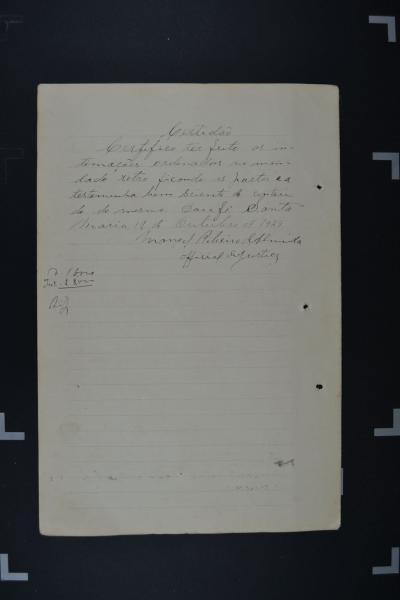 Certidão
Certifico ter feito as in-
timações ordenadas no man-
dado retro ficando as partes e a
testemunha bem sciente do conteu-
do do mesmo. Dou fé. Santa
Maria 12 de Outubro de 192
Manoel Ribeiro Almeida
Official de Justiça